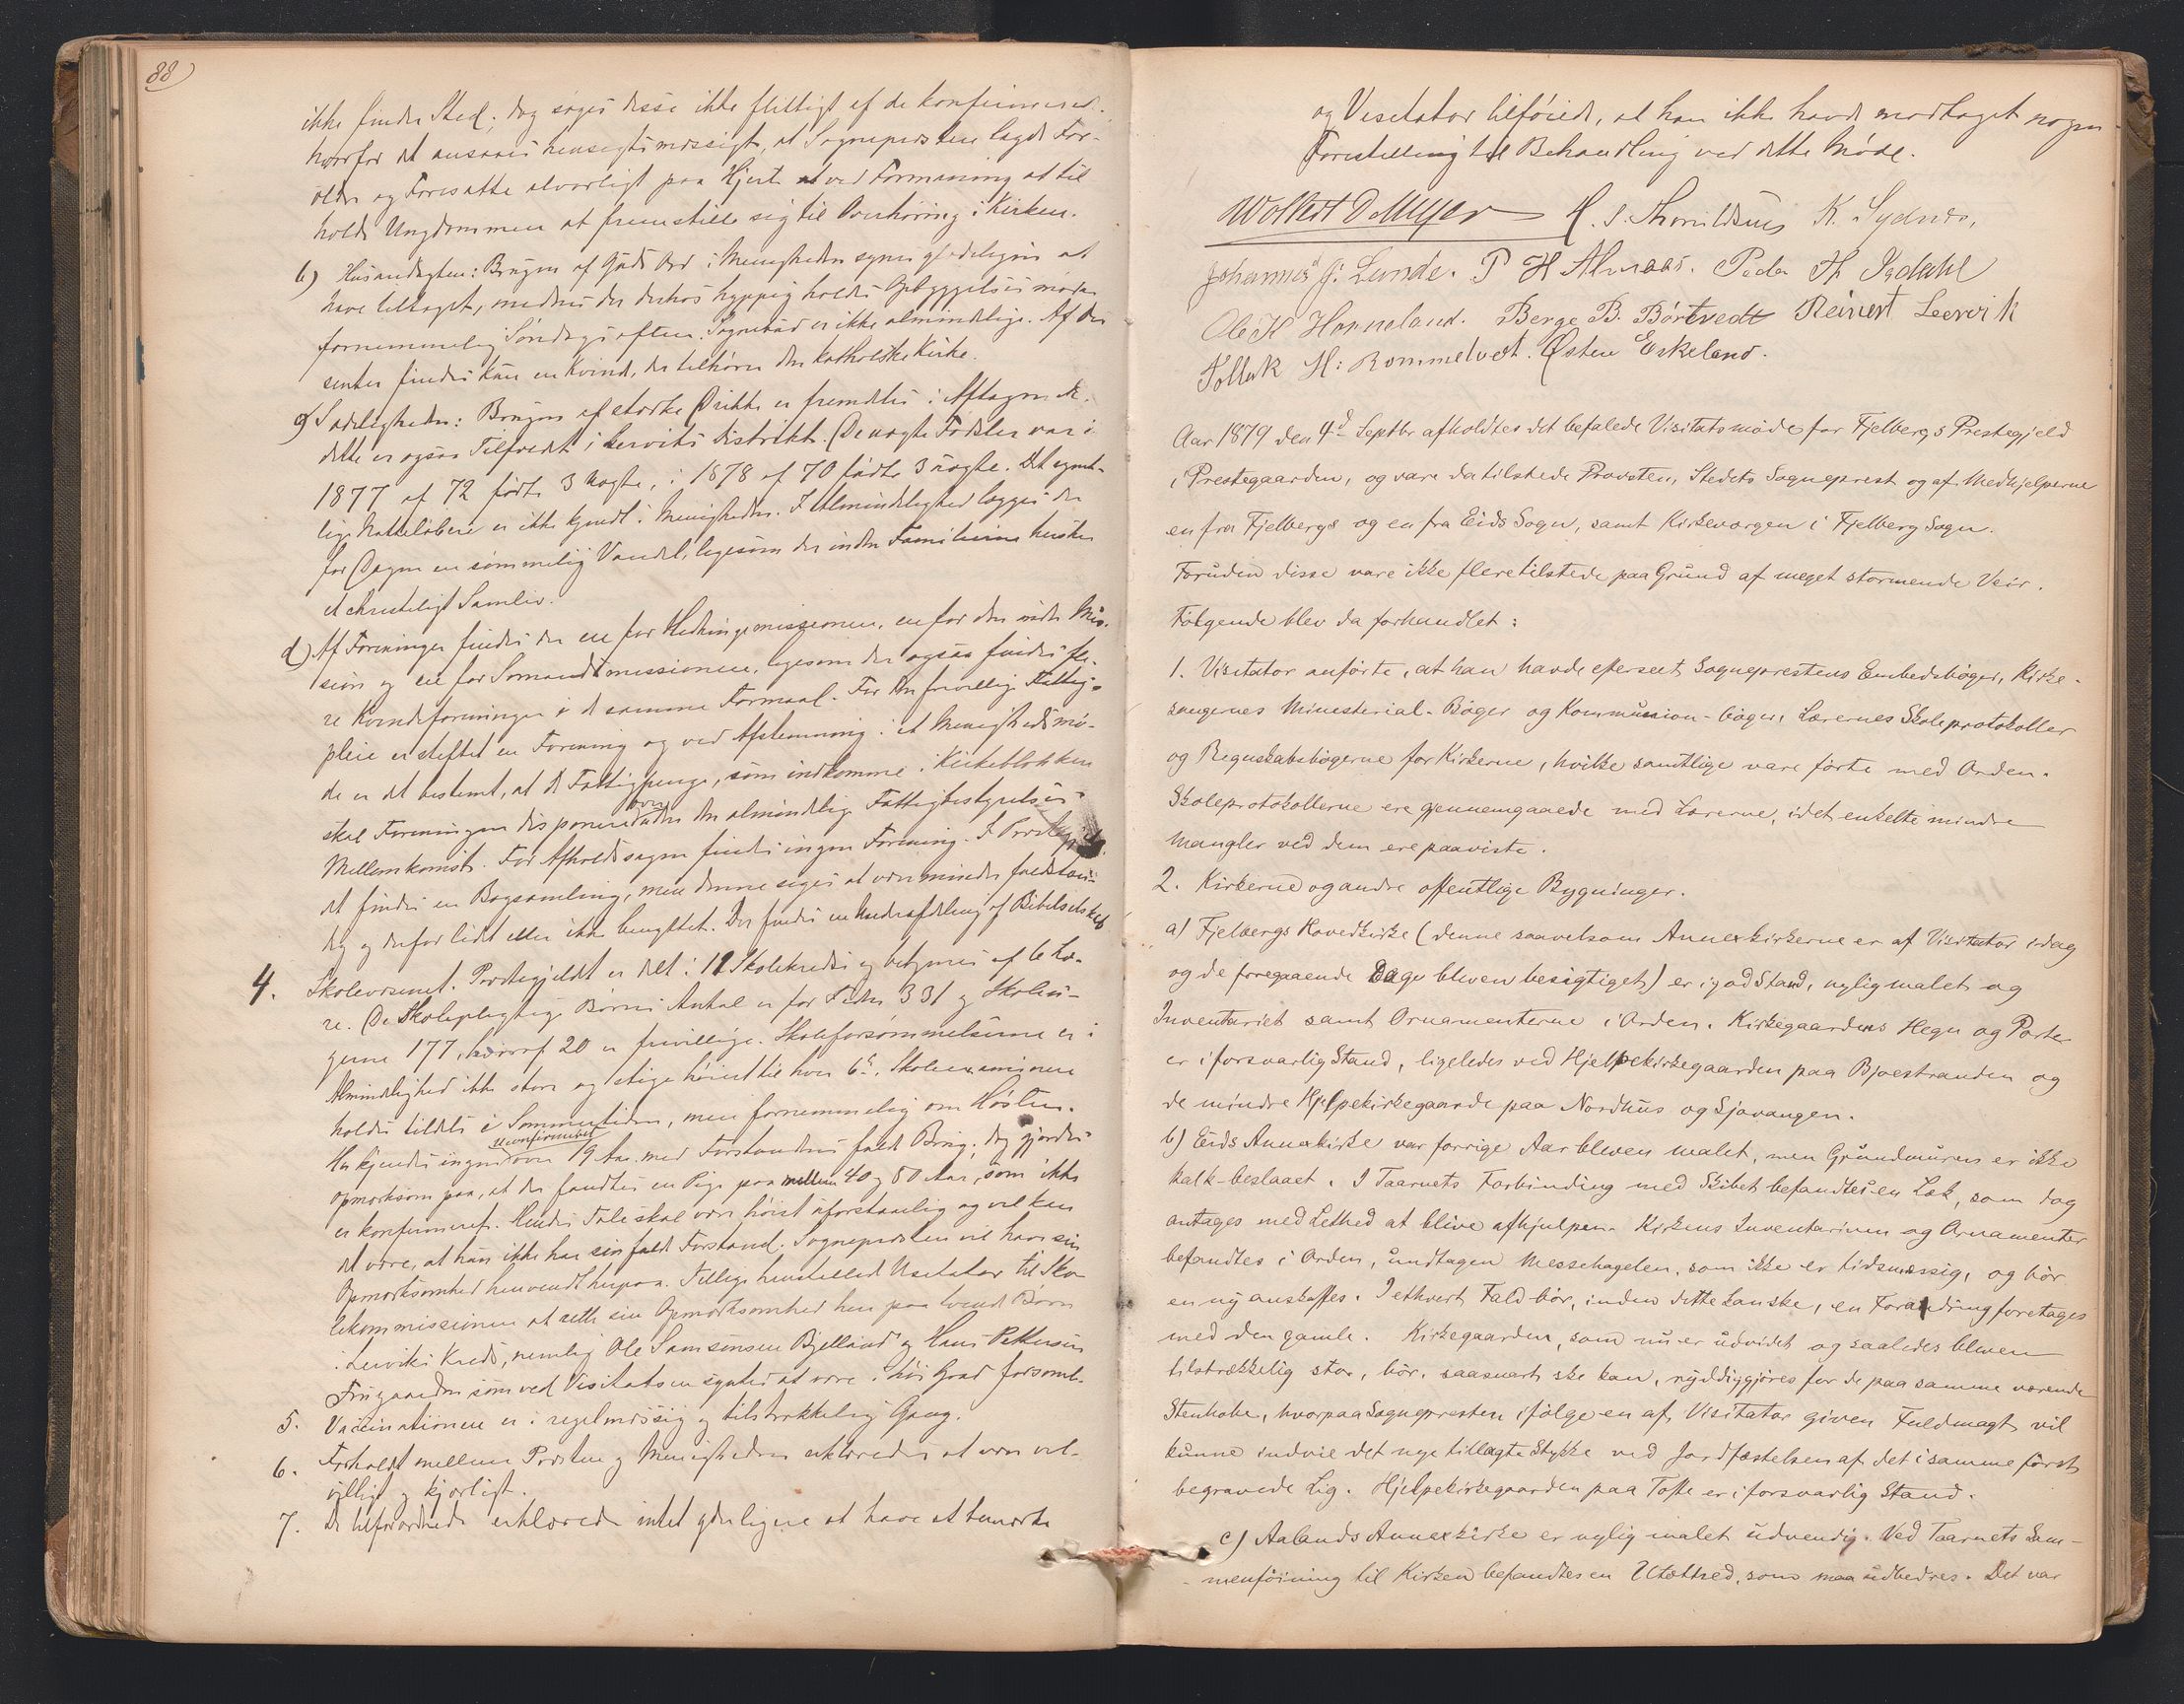 88)
ikke finder Sted; dog søges disse ikke flittigt af de konfirmered.
hvorfor det ansaaes hensigtsmæssigt, at Sognepresten lagde For-
ældre og Foresatte alvorligt paa Hjerte at ved Formaning at til
holde Ungdommen at fremstille sig til Overhøring i Kirken.
b) Husandagten: Brugen af Guds Ord i Menigheden synes glædeligen at
have tiltaget, medens der derhos hyppig holdes Opbyggelsesmøder
fornemmelig Søndags aften. Sognebud er ikke almindelige. Af Dis
senter findes kun en Kvinde, der tilhører den katholske Kirke.
c) Sædeligheden: Brugen af stærke Drikke er fremdeles i Aftagende.
dette er ogsaa Tilfældet i Lerviks Distrikt. De uægte Fødsler var i
1877 af 72 fødte 3 uægte, i 1878 af 70 fødte 3 uægte. Det egent-
lige Natteløberi er ikke kjendt i Menigheden. I Almindelighed lægges der
for Dagen en sømmelig Vandel, ligesom der inden Familierne hersker
et christeligt Samliv.
d) Af Foreninger findes der en for Hedningemissionen, en for den indre Mis-
sion og en for Sømandsmissionen, ligesom der ogsaa findes fle-
re Kvindeforeninger i det samme Formaal. For den frivillige Fattig-
pleie er stiftet en Forening og ved Afstemning i et Menighedsmø-
de er det bestemt, at de Fattigpenge, som indkomme i Kirkeblokken
skal Foreningen disponere over uden den almindelige Fattigbestyrelses
Mellemkomst. For Afholdssagen findes ingen Forening. I Prestegjel-
det findes en Bogsamling, men denne siges at være mindre fuldstæn-
dig og derfor lidt eller ikke benyttet. Der findes en Underafdeling af Bibelselskab
4. Skolevæsenet. Prestegjeldet er delt i 12 Skolekredse og betjenes af 6 Læ-
re. De Skolepligtige Børns Antal er for Tiden 331 og Skolen-
gerne 177, hvoraf 20 er frivillige. Skoleforsømmelserne er i
Almindelighed ikke store og stige høiest til hver 6te. Skoleexaminerne
holdes tildels i Sommertiden, men fornemmelig om Høsten.
Her kjendes ingen ukonfirmeret over 19 Aar med Forstandens fulde Brug; dog gjordes
opmærksom paa, at der fandtes en Pige paa mellem 40 og 50 Aar, som ikke
er konfirmeret. Hendes Tale skal være høist uforstaaelig og vel kan
det være, at hun ikke har sin fulde Forstand. Sognepresten vil have sin
Opmærksomhed henvendt herpaa. Tillige henstillede Visitator til Sko-
lekommissionen at rette sin Opmærksomhed hen paa tvende Børn
i Lerviks Kreds, nemlig Ole Samsonsen Bjelland og Hans Pettersen
Frugaarden som ved Visitatsen syntes at være i høi Grad forsømte.
5. Vaccinationen er i regelmæssig og tilstrækkelig Gang.
6. Forholdet mellem Presten og Menigheden erklæredes at være vel-
villigt og kjærligt.
7. De tilforordnede erklærede intet yderligere at have at bemærke
og Visitator tilføiede, at han ikke havde modtaget nogen
Forestilling til Behandling ved dette Møde.
Wollert D Meyer H. S. Thorvildsens K. Sydnes,
Johannes J. Lunde. P H Almaas. Peder H. Ixdahl
Ole H Hanneland. Berge B. Børtvedt Reinert Leervik
Tollak H: Rommetvedt. Østen Eskeland.
Aar 1879 den 4de Septbr afholdtes det befalede Visitatsmøde for Fjelbergs Prestegjeld
i Prestegaarden, og vare da tilstede Provsten, Stedets Sogneprest og af Medhjelperne
en fra Fjelbergs og en fra Eids Sogn, samt Kirkeværgen i Fjelberg Sogn.
Foruden disse vare ikke flere tilstede paa Grund af meget stormende Veir.
Følgende blev da forhandlet:
1. Visitator anførte, at han havde efterseet Sogneprestens Embedsbøger, Kirke-
sangernes Ministerial-Bøger og Kommunion-bøger, Lærernes Skoleprotokoller
og Regnskabsbøgerne for Kirkerne, hvilke samtlige vare førte med Orden.
Skoleprotokollerne ere gjennemgaaede med Lærerne, idet enkelte mindre
Mangler ved dem ere paaviste.
2. Kirkerne og andre offentlige Bygninger.
a) Fjelbergs Hovedkirke (denne saavelsom Annexkirkerne er af Visitator idag
og de foregaaende Dage bleven besigtiget) er i god Stand, nylig malet og
Inventariet samt Ornamenterne i Orden. Kirkegaardens Hegn og Porte
er i forsvarlig Stand, ligeledes ved Hjelpekirkegaarden paa Bjoestranden og
de mindre Hjelpekirkegaarde paa Nordhus og Sjovangen.
b) Eids Annexkirke var forrige Aar bleven malet, men Grundmuren er ikke
kalk-beslaaet. I Taarnets Forbinding med Skibet befandtes en Læk, som dog
antages med Lethed at blive afhjulpen. Kirkens Inventarium og Ornamenter
befandtes i Orden, undtagen Messehagelen, som ikke er tidsmæssig, og bør
en ny anskaffes. I ethvert Fald bør, inden dette kan ske, en Forandring foretages
med den gamle. Kirkegaarden, som nu er udvidet og saaledes bleven
tilstrækkelig stor, bør, saasnart ske kan, ryddiggjøres for de paa samme værende
Stenhobe, hvorpaa Sognepresten ifølge en af Visitator given Fuldmagt vil
kunne indvie det nye tillagte Stykke ved Jordfæstelsen af det i samme først
begravede Lig. Hjelpekirkegaarden paa Tofte er i forsvarlig Stand.
c) Aalands Annexkirke er nylig malet udvendig. Ved Taarnets Sam-
menføining til Kirken befandtes en Utæthed, som maa udbedres. Det var